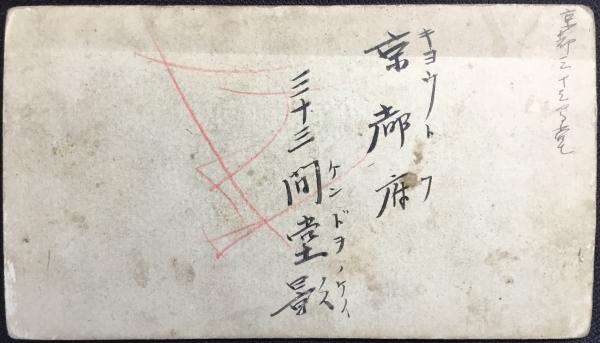 京都三十三間堂
キヨウトフ
京都府
三十三間堂影
ケンドヲノケイ